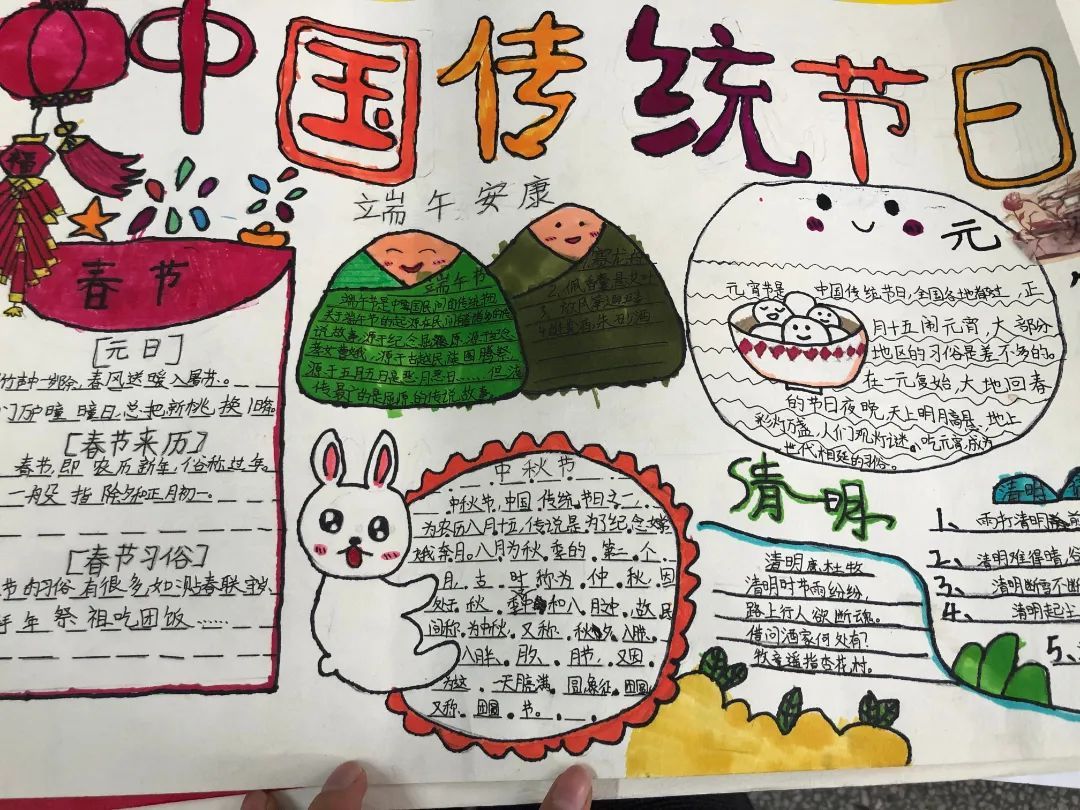 中国传统节日
福
春节
[元日]
竹声中一岁除,春风送暖入屠苏。
门万户曈曈日,总把新桃换旧符。
[春节来历]
春节,即农历新年,俗称过年。
一般指除夕和正月初一。
[春节习俗]
节的习俗有很多,如:贴春联、守岁、
年祭祖吃团饭……
端午安康
端午节
端午节是中国民间的传统节
源于五月五日是恶月恶日……但流
传最广的是屈原的传说故事。
赛龙舟
2、佩香囊悬艾叶
3、放风筝
朱砂酒
元
元宵节是中国传统节日,全国各地都过,正
月十五闹元宵,大部分
地区的习俗是差不多的。
在一元复始,大地回春
的节日夜晚,天上明月高悬,地上
彩灯万盏,人们观灯谜。吃元宵,成为
世代相延的习俗。
中秋节
中秋节,中国传统节日之一,
为农历八月十五,传说是为了纪念嫦
娥奔月。八月为秋季的第二个
月,古时称为仲秋,因
处于秋季和八月中,故民
间称为中秋,又称秋夕,
八月半,月夕,月节,又因
为这一天月亮满,圆象征团圆
又称团圆节。
清明
清明唐杜牧
清明时节雨纷纷,
路上行人欲断魂。
借问酒家何处有?
牧童遥指杏花村。
清明
1、雨打清明前
2、清明难得晴,谷
3、清明断雪不断
4、清明起尘
5、